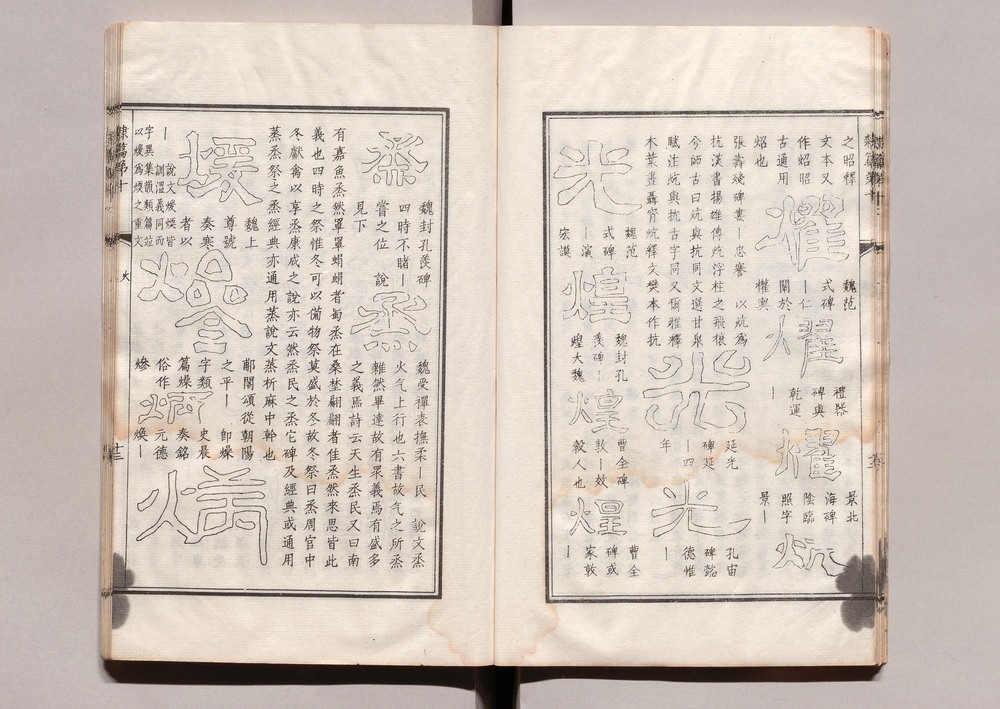 之昭釋
文本又
作炤昭
古通用
炤也
燿
魏范
式碑
｜仁
闡於
權輿
燿
禮器
碑與
乾運
｜
燿
景北
海碑
陰臨
照字
景｜
炕
張壽殘碑婁｜忠謇 以炕為
抗漢書揚雄傳炕浮柱之飛榱
今師古曰炕與抗同文選甘泉
賦注炕與抗古字同又爾雅釋
木葉晝聶宵炕釋文樊本作抗
光
延光
碑延
｜四
年
光
孔宙
碑銘
德惟
｜
光
魏范
式碑
｜演
宏謨
煌
魏封孔
羨碑｜
煌大魏
煌
曹全碑
敦｜效
穀人也
煌
曹全
碑或
家敦
｜
烝
魏封孔羨碑
四時不睹｜
嘗之位 說
見下
烝
魏受禪表撫柔｜民 說文烝
火气上行也六書故气之所烝
雜然畢達故有衆義焉有盛多
之義焉詩云天生烝民又曰南
有嘉魚烝然罩罩蜎蜎者蜀烝在桑埜翩翩者隹烝然來思皆此
義也四時之祭惟冬可以僃物祭莫盛於冬故冬祭曰烝周官中
冬獻禽以享烝康成之說亦云然烝民之烝它碑及經典或通用
蒸烝祭之烝經典亦通用蒸說文蒸析麻中幹也
煖
魏上
尊號
奏寒
者以
｜
說文煖煗皆
訓溫義同而
字異集韻類篇竝
以煖為煗之重文
鄐閣頌從朝陽
之平｜ 即燥
字類
篇燥
俗作
史晨
奏銘
元德
煥｜
隸篇弟十
十三